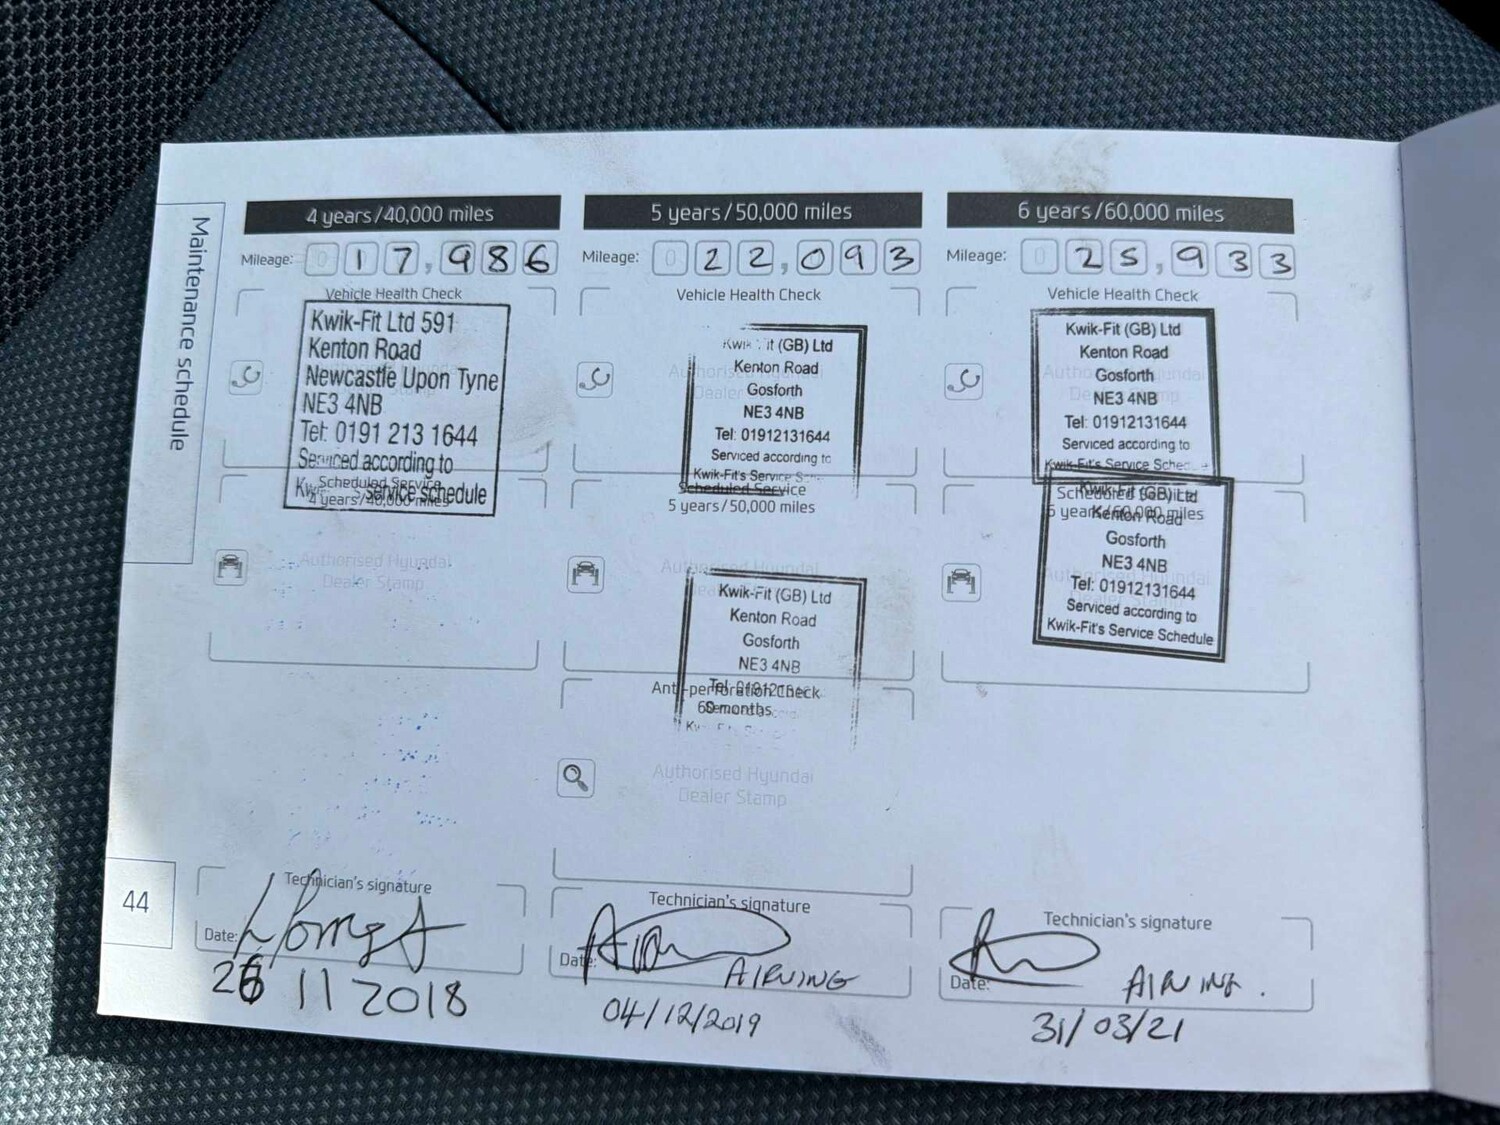 Maintenance schedule
44
4 years/40,000 miles
Mileage: 017,986
Vehicle Health Check
Kwik-Fit Ltd 591
Kenton Road
Newcastle Upon Tyne
NE3 4NB
Tel: 0191 213 1644
Serviced according to
service schedule
Scheduled Service
4 years/40,000 miles
Authorised Hyundai
Dealer Stamp
Technician's signature
Date:
26 11 2018
5 years/50,000 miles
Mileage: 022,093
Vehicle Health Check
Authorised Hyundai
Dealer Stamp
(GB) Ltd
Kenton Road
Gosforth
NE3 4NB
Tel: 01912131644
Serviced according to
Kwik-Fit's Service
Scheduled Service
5 years/50,000 miles
Authorised Hyundai
Kwik-Fit (GB) Ltd
Kenton Road
Gosforth
NE3 4NB
Anti-perforation Check
60 months
Authorised Hyundai
Dealer Stamp
Technician's signature
Date:
AIRVING
04/12/2019
6 years/60,000 miles
Mileage: 025,933
Vehicle Health Check
Authorised Hyundai
Dealer Stamp
Kwik-Fit (GB) Ltd
Kenton Road
Gosforth
NE3 4NB
Tel: 01912131644
Serviced according to
Kwik-Fit's Service
Scheduled Service
6 years/60,000 miles
Kwik-Fit (GB) Ltd
Kenton Road
Gosforth
NE3 4NB
Tel: 01912131644
Serviced according to
Kwik-Fit's Service Schedule
Technician's signature
Date:
AIRVING.
31/03/21